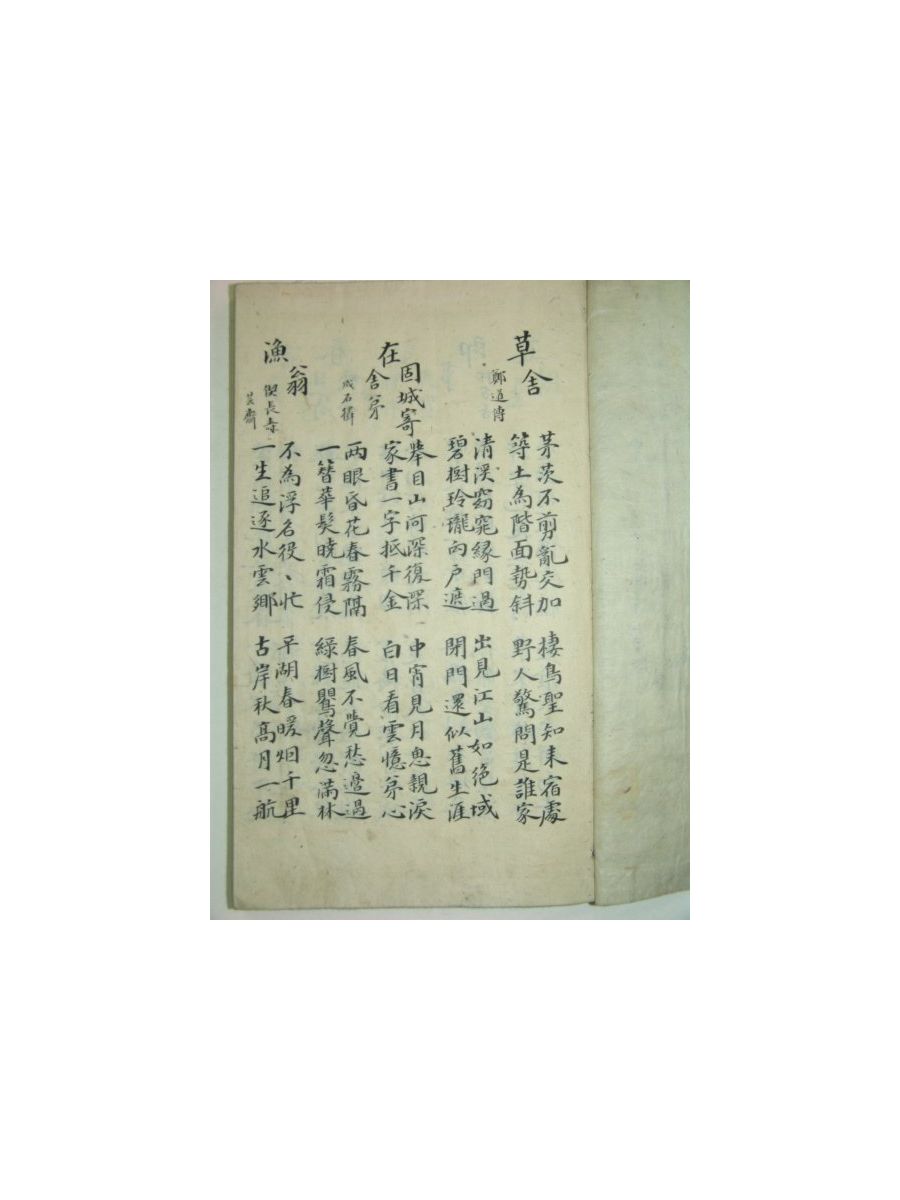 草舍
鄭道傳
茅茨不剪亂交加
築土為階面勢斜
棲鳥聖知来宿處
野人驚問是誰家
清溪窈窕緣門過
碧樹玲瓏向戶遮
出見江山如絶域
閉門還似舊生涯
在固城寄舍弟
成石
擧目山河深復深
家書一字抵千金
中宵見月思親淚
白日看雲憶弟心
兩眼昏花春霧隔
一簪華髮曉霜侵
春風不覺愁邊過
綠樹鸎聲忽滿林
漁翁
偰長壽
芸齋
不為浮名役〻忙
一生追逐水雲鄉
平湖春暖烟千里
古岸秋高月一航